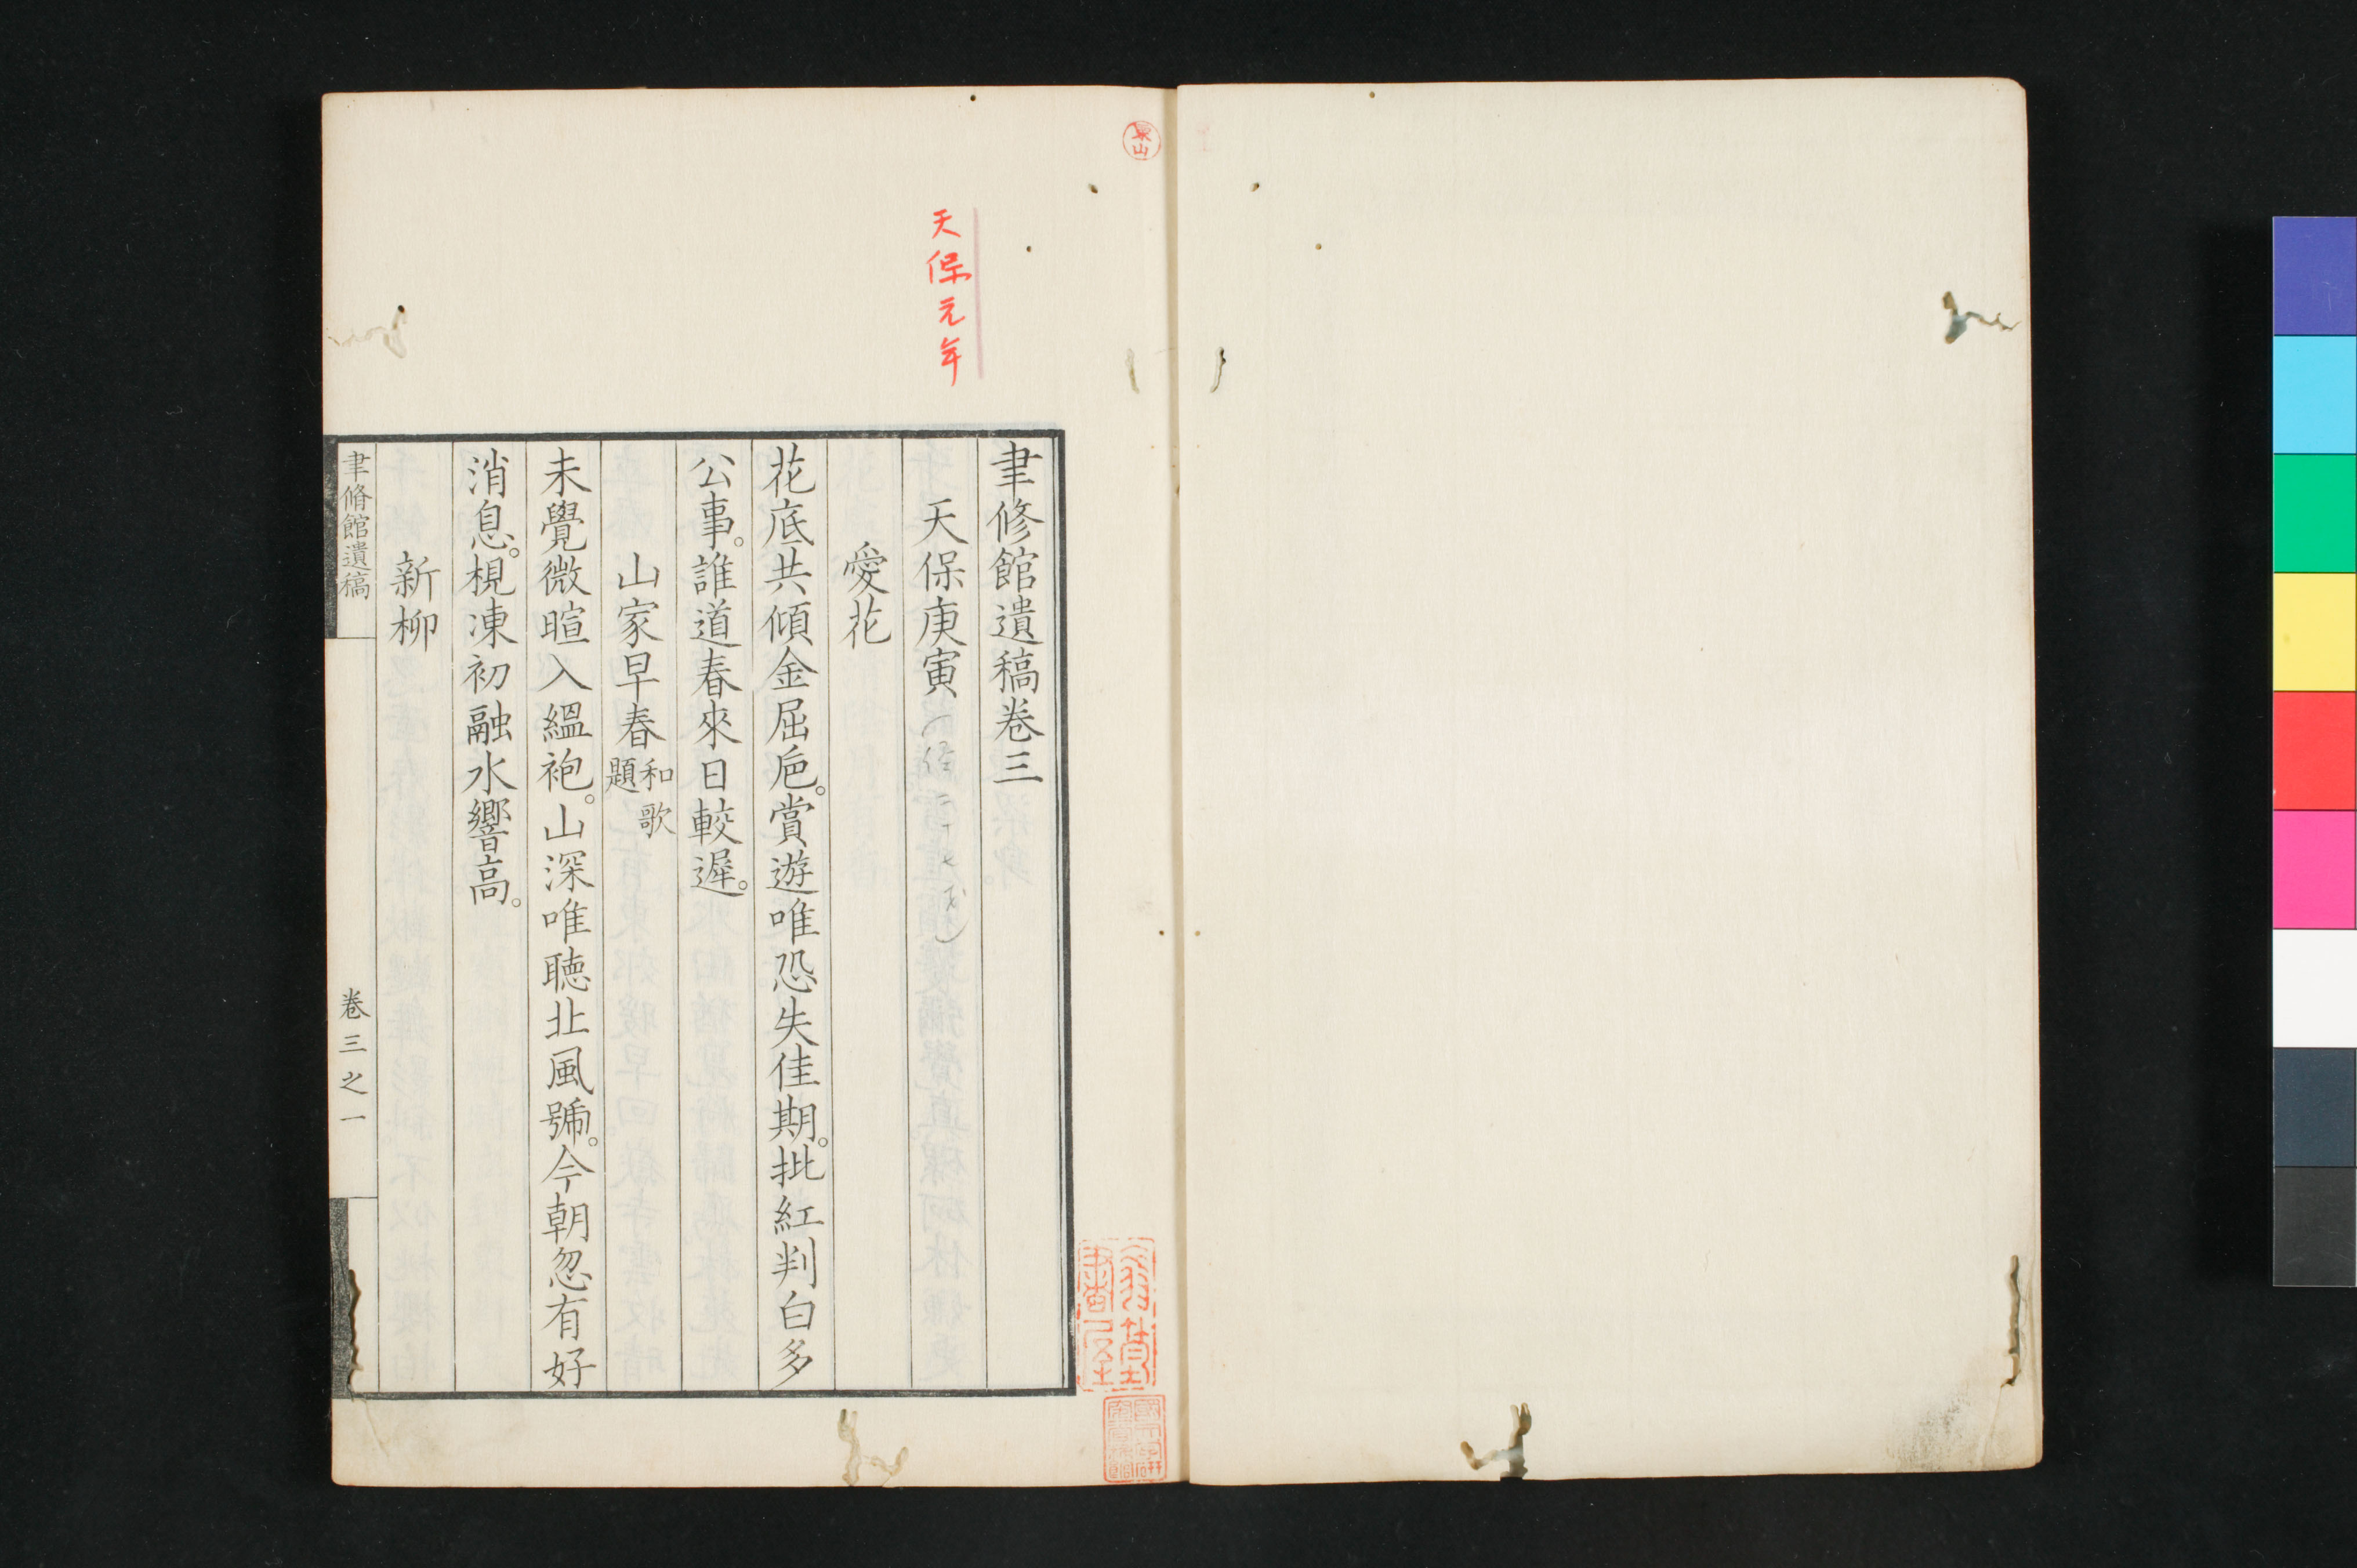 聿修館遺稿卷三
天保庚寅
天保元年
愛花
花底共傾金屈巵。賞遊唯恐失佳期。批紅判白多
公事。誰道春來日較遲。
山家早春和歌題
未覺微暄入縕袍。山深唯聽北風號。今朝忽有好
消息。梘凍初融水響高。
新柳
聿脩館遺稿
卷三之一